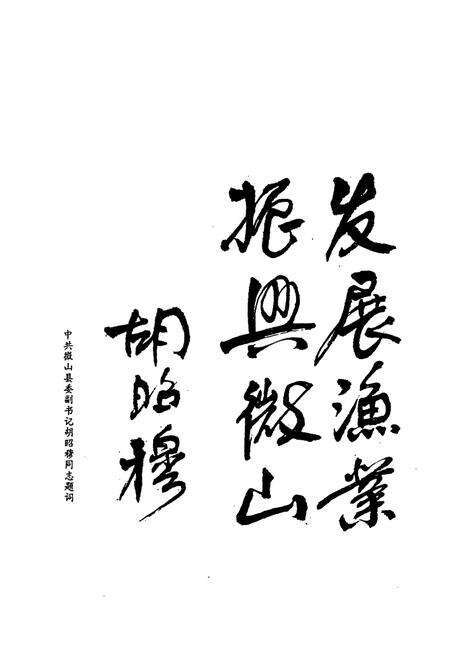 发展渔業
振興微山
胡昭穆
中共微山县委副书记胡昭穆同志题词